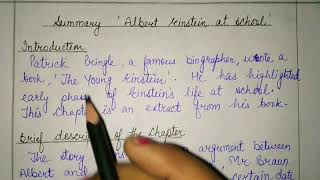 Summary 'Albert Einstein at school'
Introduction
Patrick Pringle, a famous biographer, wrote a
book, 'The Young Einstein'. He has highlighted
early phase of Einstein's life at school.
This chapter is an extract from his book.
Brief description of the Chapter
The story argument between
Albert and Mr Braun
certain date